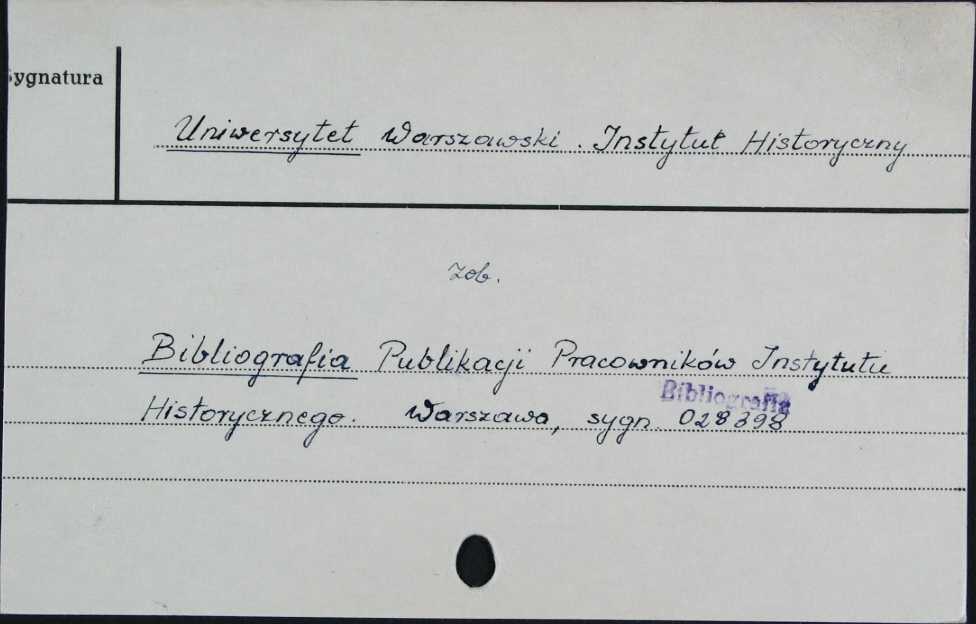 Sygnatura
Uniwersytet Warszawski. Instytut Historyczny
zob.
Bibliografia Publikacji Pracowników Instytutu
Bibliografia
Historycznego. Warszawa, sygn. 028398